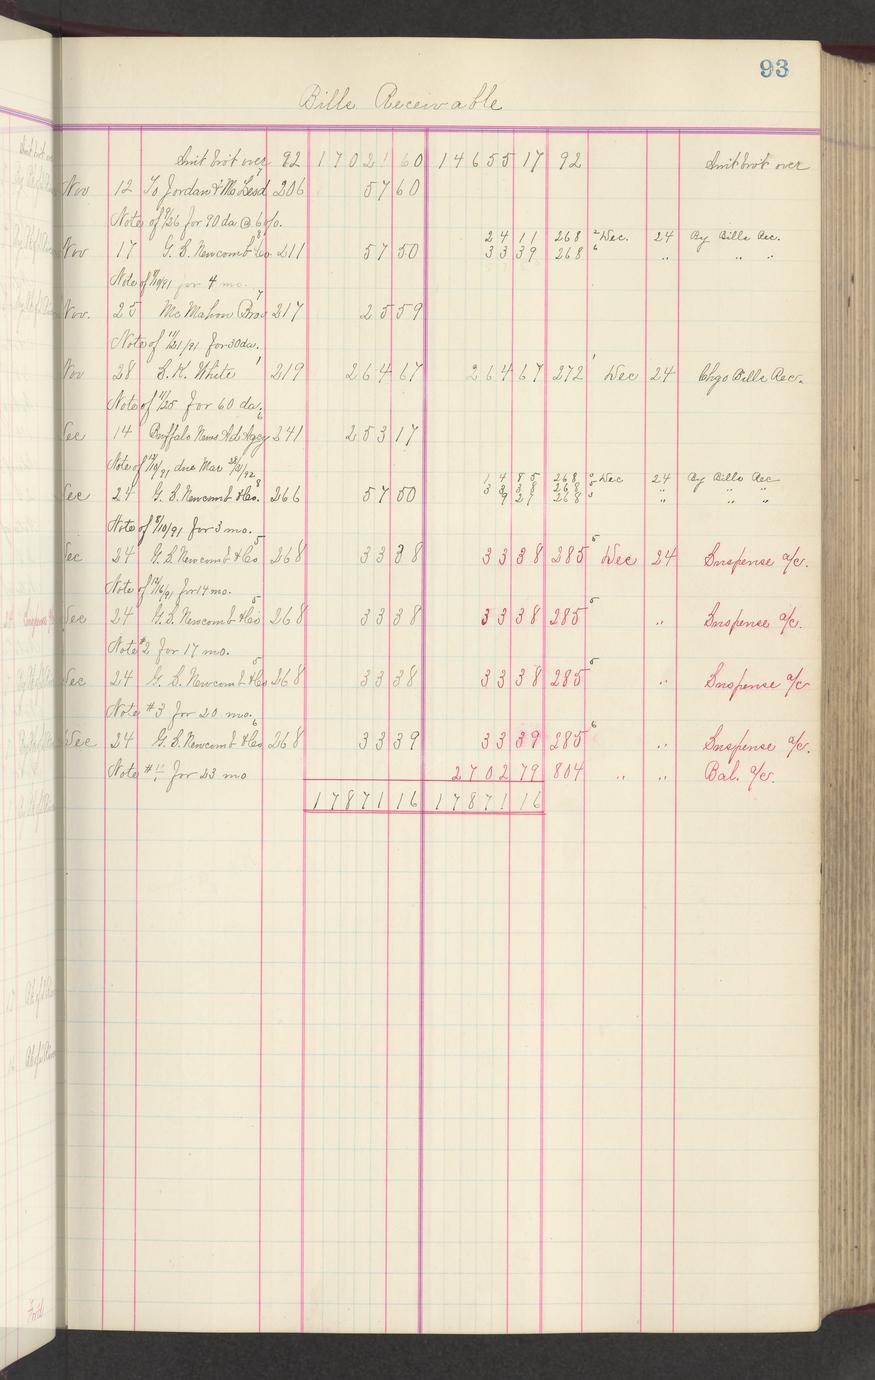 93
Bills Receivable
Amt brot over 92 17021 60 14655 17 92 Amt brot over
Nov 12 To Jordan & McLeod 7 206 57 60
Note of 9/26 for 90 da @ 6 %.
24 11 268 2 Dec. 24 By Bills Rec.
Nov 17 G. S. Newcomb & Co 8 211 57 50 33 39 268 6 " " "
Note of 8/10/91 for 4 mo.
Nov. 25 McMahon Bros 7 217 25 59
Note of 11/21/91 for 30 da.
Nov 28 S. K. White 1 219 264 67 264 67 272 1 Dec 24 Chgo Bills Rec.
Note of 11/25 for 60 da.
Dec 14 Buffalo News Ad Agcy 6 241 253 17
Note of 12/10/91 due Mar 28/31/92
14 85 268 2 Dec 24 By Bills Rec
33 38 268 5 " " "
Dec 24 G. S. Newcomb & Co. 8 266 57 50 9 27 268 3 " " "
Note of 8/10/91 for 3 mo.
Dec 24 G. S. Newcomb & Co 5 268 33 38 33 38 285 5 Dec 24 Suspense a/c.
Note of 12/16/91 for 14 mo.
Dec 24 G. S. Newcomb & Co 5 268 33 38 33 38 285 5 " Suspense a/c.
Note #2 for 17 mo.
Dec 24 G. S. Newcomb & Co 5 268 33 38 33 38 285 5 " Suspense a/c
Note #3 for 20 mo.
Dec 24 G. S. Newcomb & Co 6 268 33 39 33 39 285 6 " Suspense a/c.
Note # for 23 mo 2702 79 804 " " Bal. a/c.
17871 16 17871 16